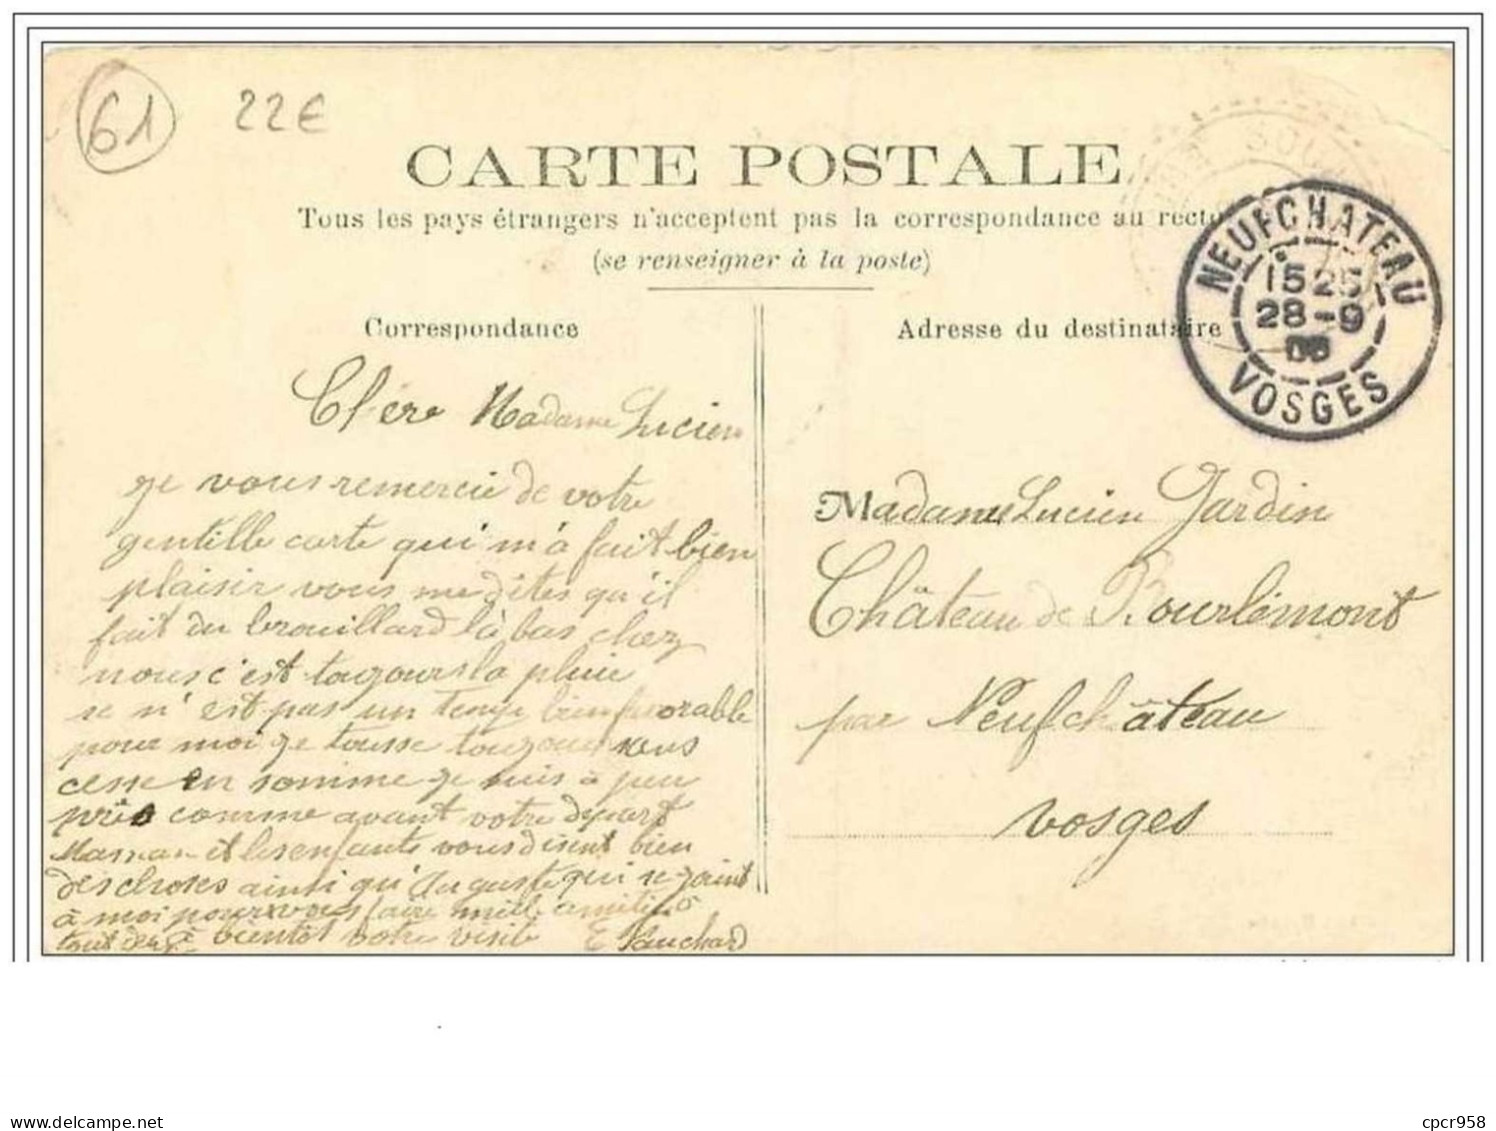 61
22€
CARTE POSTALE
Tous les pays étrangers n'acceptent pas la correspondance au recto
(se renseigner à la poste)
NEUFCHATEAU
15 25
28-9
VOSGES
Correspondance
Adresse du destinataire
Chère Madame Lucien
je vous remercie de votre
gentille carte qui m'a fait bien
plaisir vous me dites qu'il
fait du brouillard là bas chez
nous c'est toujours la pluie
se n'est pas un temps bien favorable
pour moi je tousse toujours sans
cesse en somme je suis à peu
près comme avant votre départ
Maman et les enfants vous disent bien
des choses ainsi qu'Auguste qui se joint
à moi pour vous faire mille amitiés
à bientôt votre visite E
Madame Lucien Jardin
Château de Bourlémont
par Neufchâteau
Vosges
cpcr958